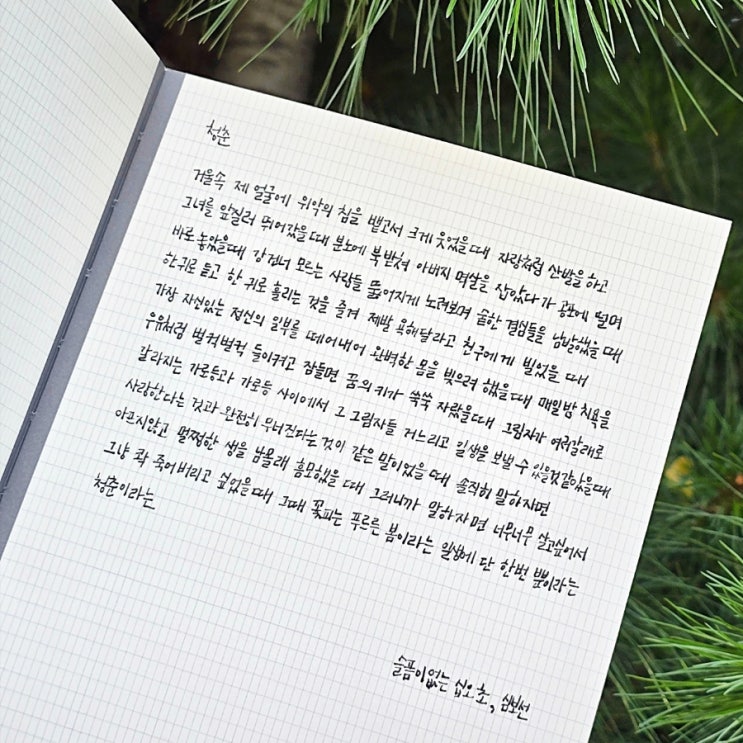 청춘
거울속 제 얼굴에 위악의 침을 뱉고서 크게 웃었을때 자랑처럼 산발을 하고
그녀를 앞질러 뛰어갔을때 분노에 북받쳐 아버지 멱살을 잡았다가 공포에 떨며
바로 놓았을때 강 건너 모르는 사람들 뚫어지게 노려보며 숱한 결심들을 남발했을 때
한 귀로 듣고 한 귀로 흘리는 것을 즐겨 제발 욕해달라고 친구에게 빌었을 때
가장 자신있는 정신의 일부를 떼어내어 완벽한 몸을 빚으려 했을때 매일밤 치욕을
우유처럼 벌컥벌컥 들이켜고 잠들면 꿈의 키가 쑥쑥 자랐을때 그림자가 여러갈래로
갈라지는 가로등과 가로등 사이에서 그 그림자들 거느리고 일생을 보낼 수 있을것같았을때
사랑한다는 것과 완전히 무너진다는 것이 같은 말이었을 때 솔직히 말하자면
아프지않고 멀쩡한 생을 남몰래 흠모했을 때 그러니까 말하자면 너무너무 살고싶어서
그냥 콱 죽어버리고 싶었을때 그때 꽃피는 푸르른 봄이라는 일생에 단 한번 뿐이라는
청춘이라는
슬픔이없는 십오 초, 심보선